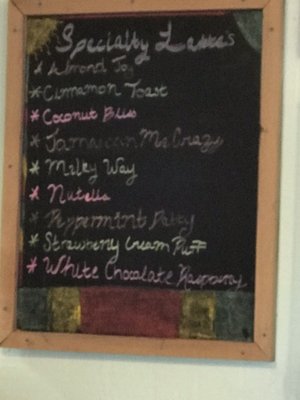 Specialty Latte's
* Almond Joy
* Cinnamon Toast
* Coconut Bliss
* Jamaican Me Crazy
* Milky Way
* Nutella
* Peppermint Patty
* Strawberry Cream Puff
* White Chocolate Raspberry